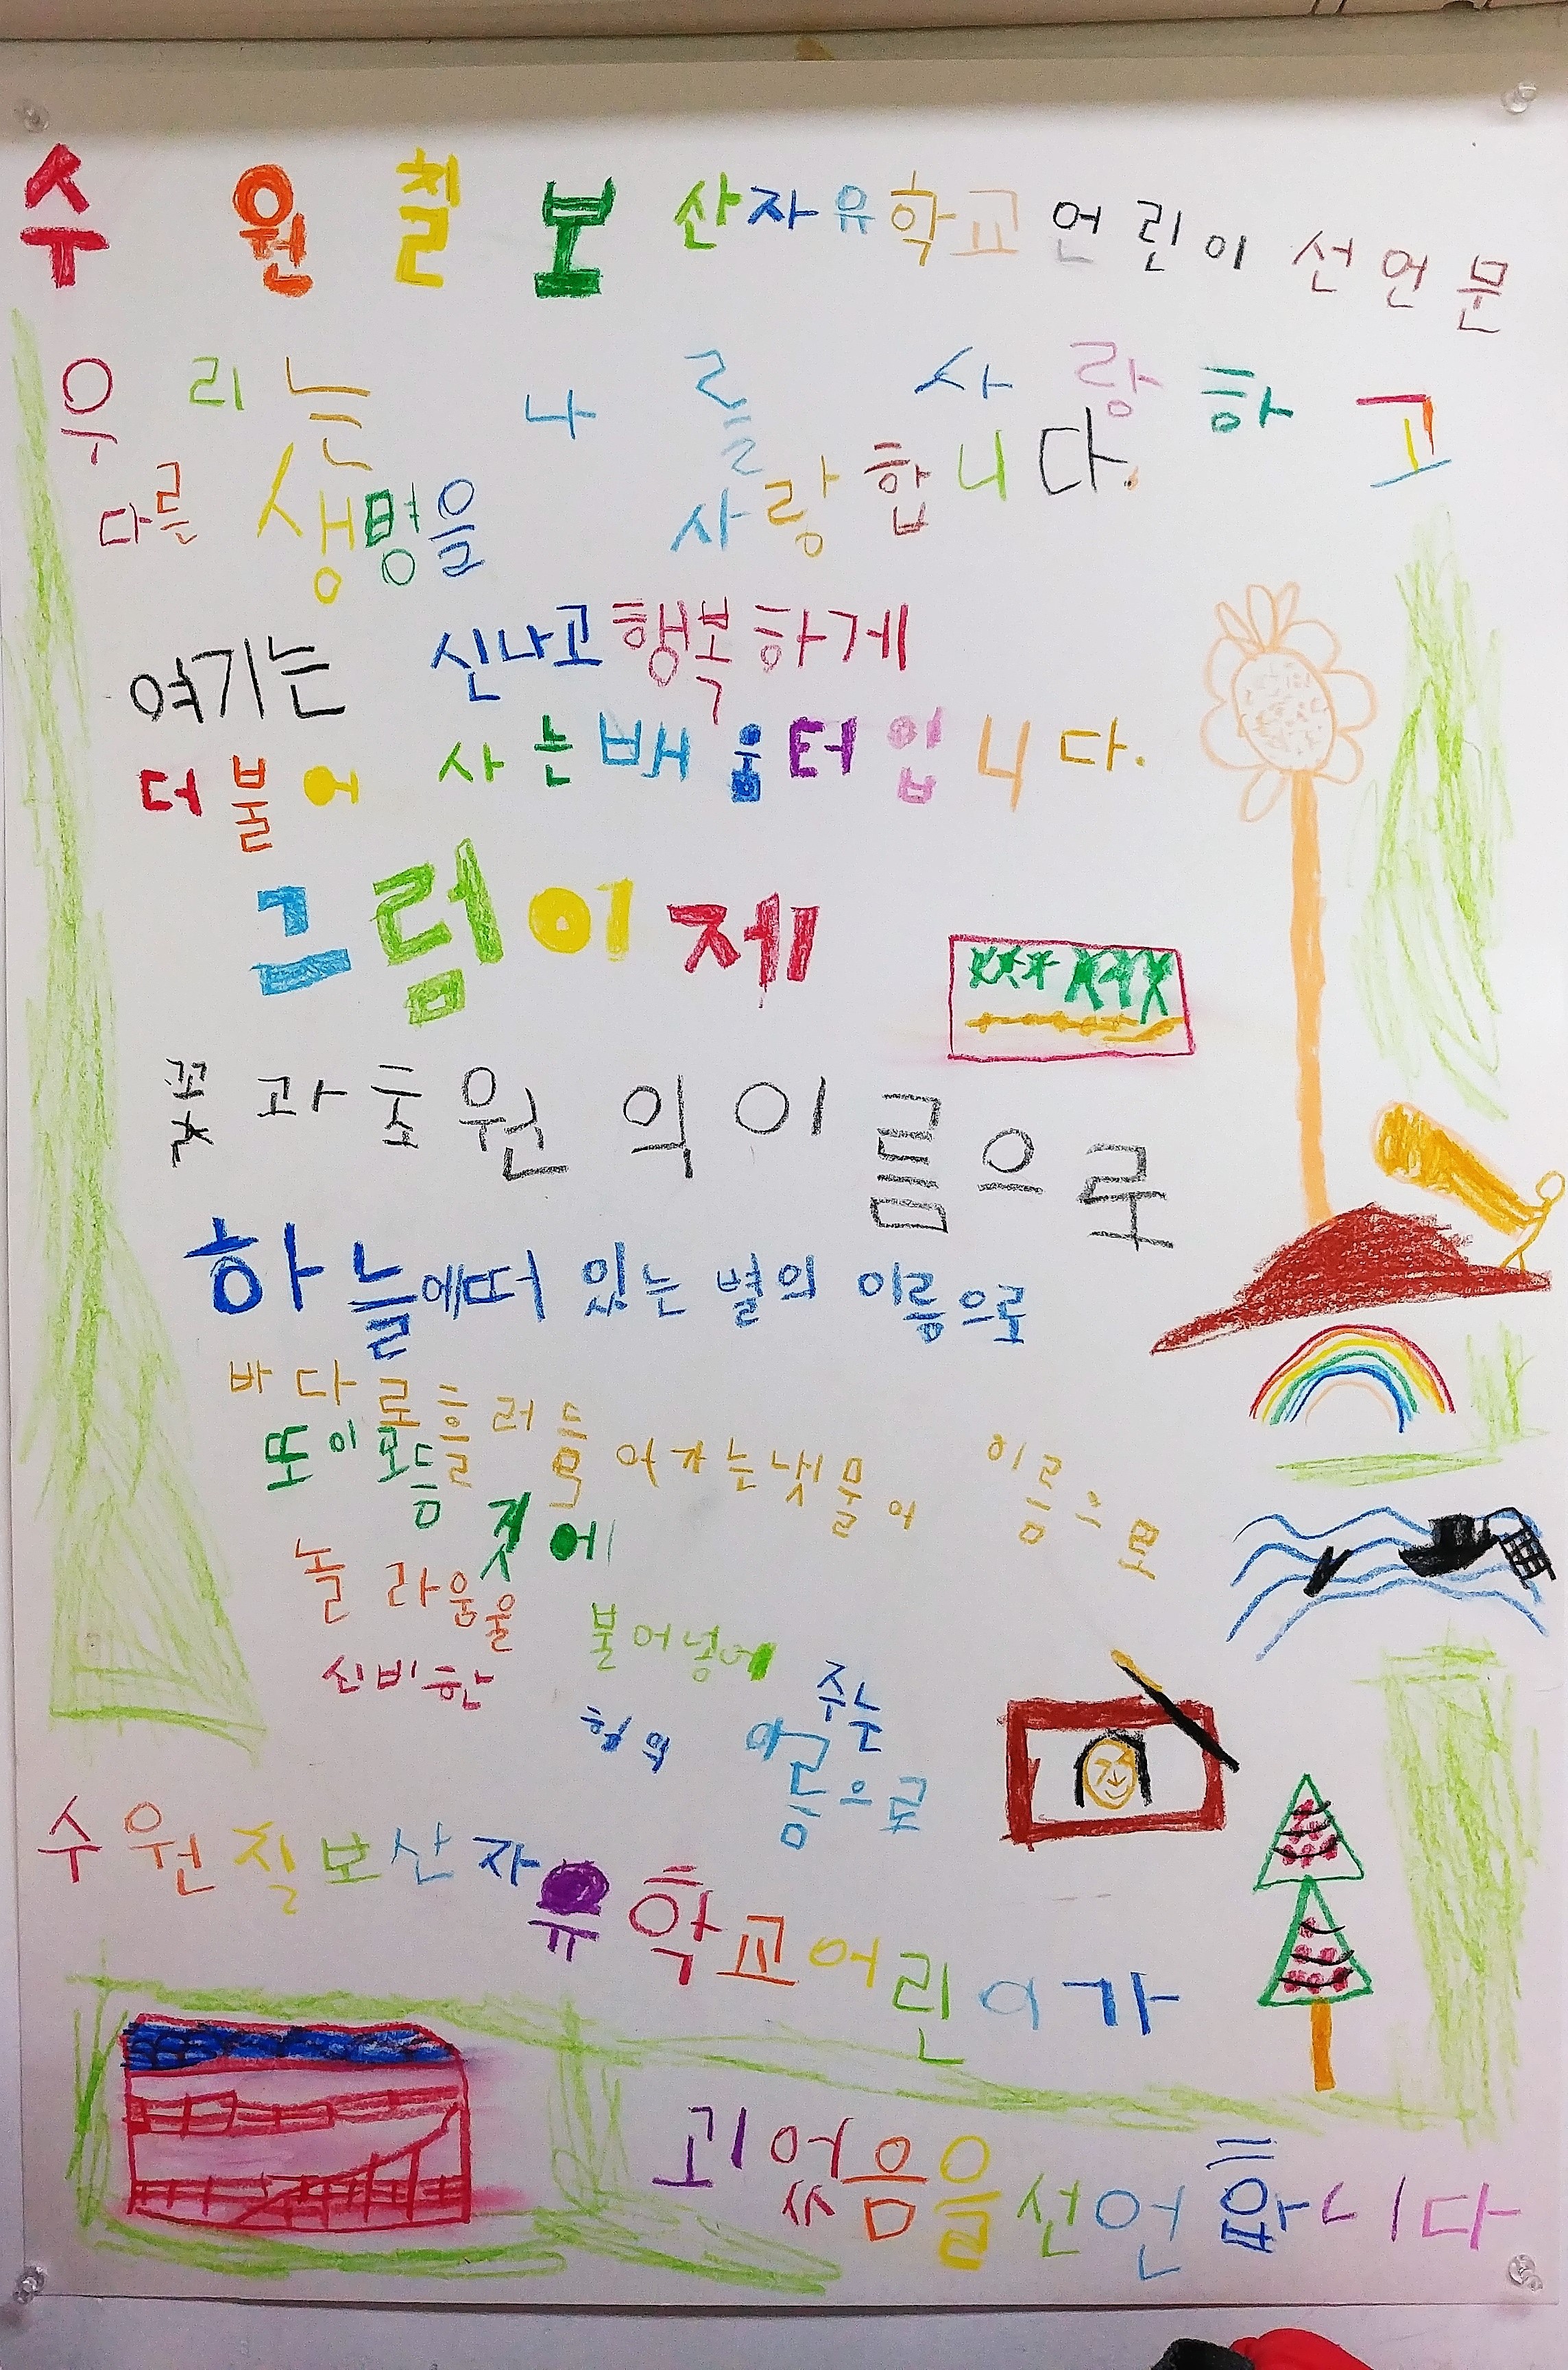 수원칠보산자유학교 어린이 선언문
우리는 나를 사랑하고
다른 생명을 사랑합니다.
여기는 신나고 행복하게
더불어 사는 배움터입니다.
그럼 이제
꽃과 초원의 이름으로
하늘에 떠 있는 별의 이름으로
바다로 흘러 들어가는 냇물의 이름으로
또 이 모든 것에
놀라움을 불어넣어 주는
신비한 힘의 이름으로
수원칠보산자유학교 어린이가
되었음을 선언합니다